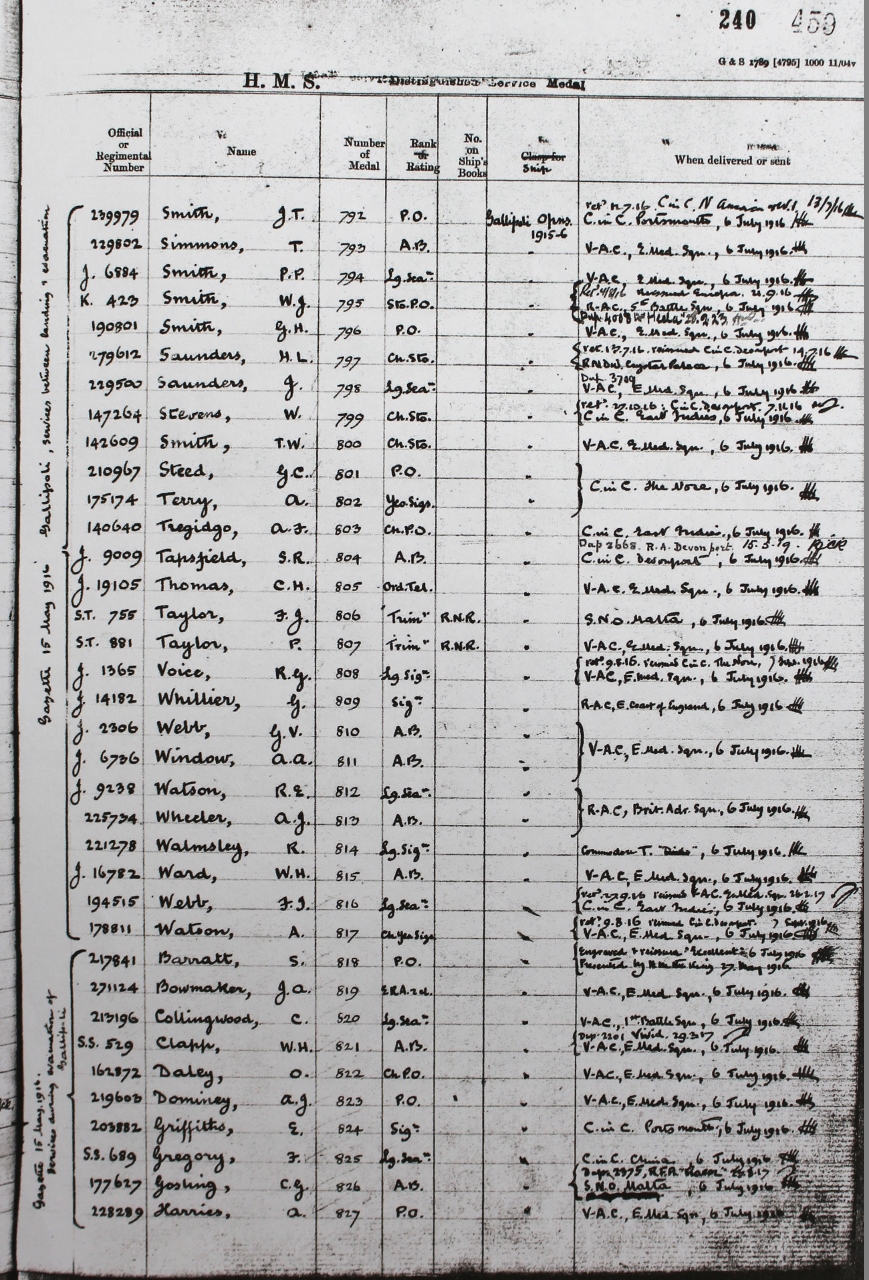 240 459
G & S 1789 [4795] 1000 11/04v
H. M. S. Distinguished Service Medal
Official or Regimental Number Name Number of Medal Rank or Rating No. on Ship's Books Clasp for Ship When delivered or sent
Gazette 15 May 1916 Gallipoli, services between landing & evacuation
retd 12.7.16 C in C N America & W.I. 13/7/16
239979 Smith, J.T. 792 P.O. Gallipoli Opns. 1915-6 C in C. Portsmouth, 6 July 1916
229802 Simmons, T. 793 A.B. " V-A.C., E. Med. Sqn., 6 July 1916.
J. 6884 Smith, P.P. 794 Lg.Sean. " V-A.C., E. Med. Sqn., 6 July 1916.
K. 423 Smith, W.J. 795 Sto.P.O. " R-A.C. 5th Battle Sqn, 6 July 1916
190801 Smith, G.H. 796 P.O. " V-A.C., E. Med. Sqn., 6 July 1916.
retd 13.7.16. reissued C in C. Devonport 14.7.16
279612 Saunders, H.L. 797 Ch.Sto. " R N Div. Crystal Palace, 6 July 1916.
Dup 3709
229500 Saunders, J. 798 Lg.Sean. " V-A.C, E. Med. Sqn., 6 July 1916.
retd. 27.10.16; C in C. Devonport. 7.11.16
147264 Stevens, W. 799 Ch.Sto. " C in C. East Indies, 6 July 1916.
142609 Smith, T.W. 800 Ch.Sto. " V-A.C. E. Med. Sqn, 6 July 1916.
210967 Steed, G.C. 801 P.O. "
C in C. The Nore, 6 July 1916.
175174 Terry, A. 802 Yeo.Sigs. "
140640 Tregidgo, A.F. 803 Ch.P.O. " C in C. East Indies, 6 July 1916.
Dup 2668. R.A. Devonport. 15.5.19.
J. 9009 Tapsfield, S.R. 804 A.B. " C in C. Devonport, 6 July 1916.
J. 19105 Thomas, C.H. 805 Ord.Tel. " V-A.C. E. Med. Sqn., 6 July 1916.
S.T. 755 Taylor, F.J. 806 Trimr R.N.R. " S.N.O. Malta, 6 July 1916
S.T. 881 Taylor, P. 807 Trimr R.N.R. " V-A.C., E. Med. Sqn., 6 July 1916.
retd. 9.8.16. reissued C in C. The Nore, Sept. 1916
J. 1365 Voice, R.G. 808 Lg.Sign. " V-A.C, E. Med. Sqn., 6 July 1916
J. 14182 Whillier, G. 809 Sign. " R-A.C, E. Coast of England, 6 July 1916
J. 2306 Webb, G.V. 810 A.B. "
V-A.C, E. Med. Sqn., 6 July 1916.
J. 6736 Window, A.A. 811 A.B. "
J. 9238 Watson, R.E. 812 Lg.Sean. "
R-A.C, Brit. Adr. Sqn, 6 July 1916.
225734 Wheeler, A.J. 813 A.B. "
221278 Walmsley, R. 814 Lg.Sign. " Commodore T. "Dido", 6 July 1916.
J. 16782 Ward, W.H. 815 A.B. " V-A.C, E. Med. Sqn., 6 July 1916.
194515 Webb, F.J. 816 Lg.Sean. " C in C. East Indies, 6 July 1916.
retd. 9.8.16 reissued C in C. Devonport Sept. 1916
178811 Watson, A. 817 Ch.Yeo.Sigs " V-A.C, E. Med. Sqn., 6 July 1916.
Gazette 15 May, 1916. Services during evacuation of Gallipoli
Engraved & reissued "Excellent" 6 July 1916
217841 Barratt, S. 818 P.O. " Presented by H.M. the King 27. May 1916
271124 Bowmaker, J.A. 819 E.R.A. 2cl. " V-A.C., E. Med Sqn., 6 July 1916.
213196 Collingwood, C. 820 Lg.Sean. " V-A.C., 1st Battle Sqn., 6 July 1916.
Dup. 2201 Vivid. 29.3.17
S.S. 529 Clapp, W.H. 821 A.B. " V-A.C, E. Med. Sqn., 6 July 1916.
162872 Daley, O. 822 Ch.P.O. " V-A.C., E. Med Sqn., 6 July 1916.
219603 Dominey, A.J. 823 P.O. " V-A.C., E. Med Sqn., 6 July 1916.
203882 Griffiths, E. 824 Sign. " C. in C. Portsmouth, 6 July 1916.
S.S. 689 Gregory, F. 825 Lg.Sean. " C in C. China 6 July 1916
177627 Gosling, C.G. 826 A.B. " S.N.O. Malta, 6 July 1916.
228289 Harries, A. 827 P.O. " V-A.C., E. Med Sqn, 6 July 1916